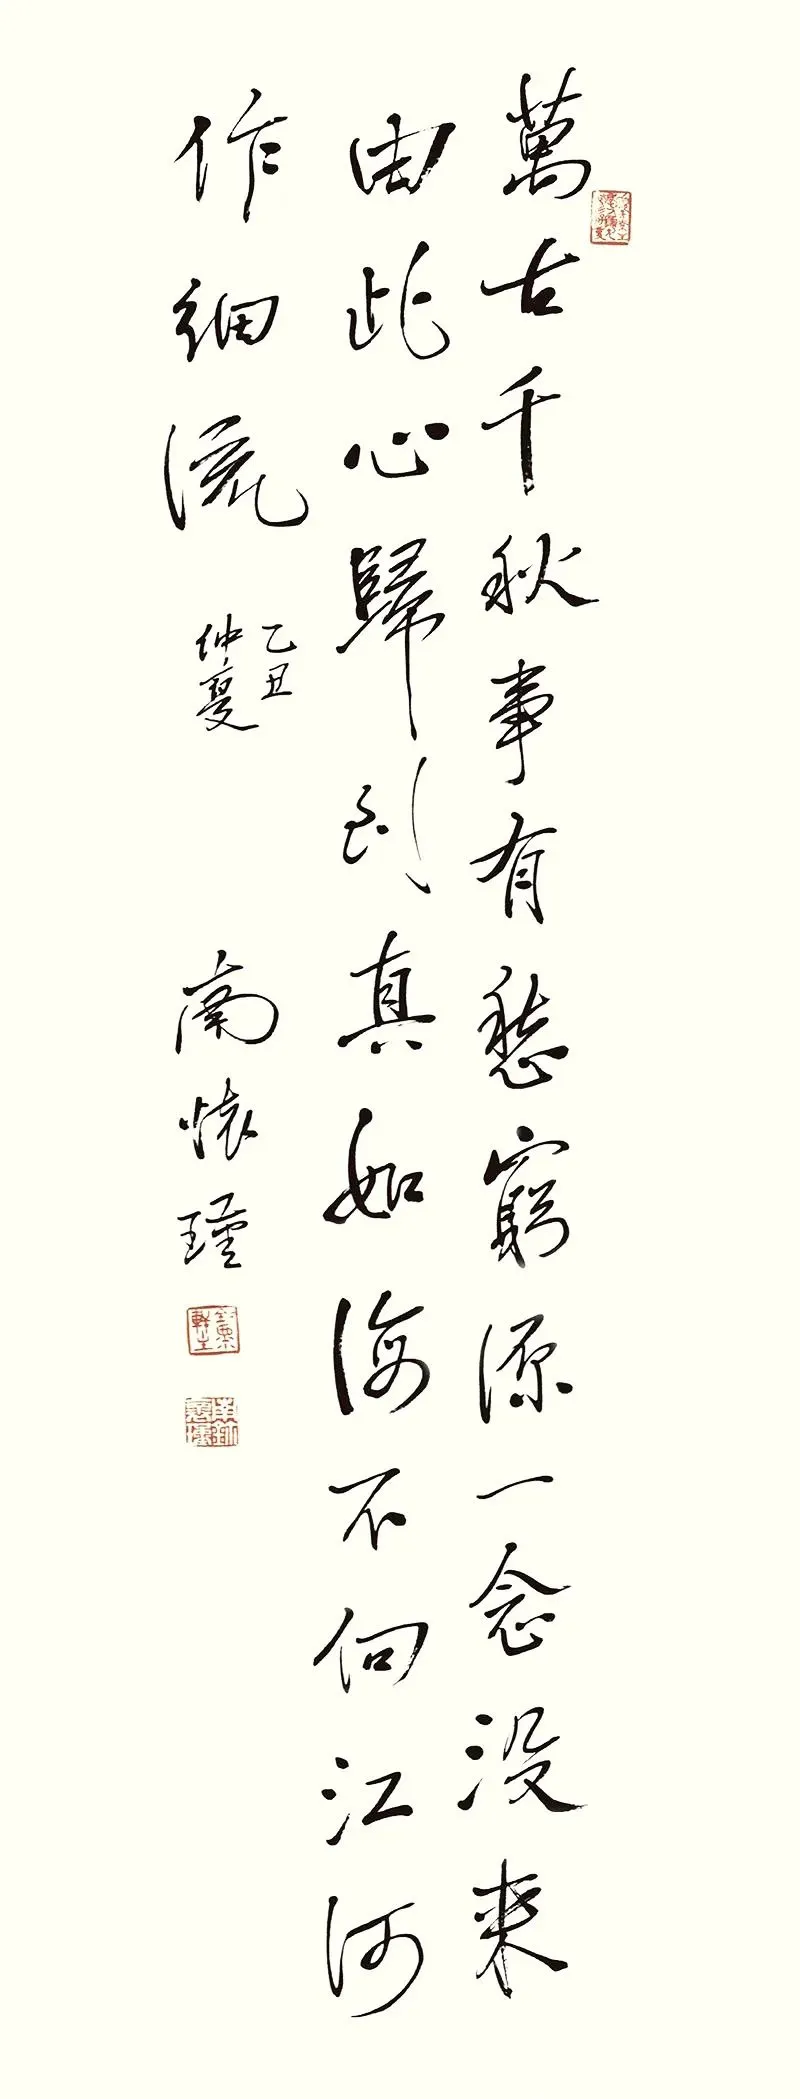 萬古千秋事有愁窮源一念没来
由此心歸到真如海不向江河
作細流
乙丑
仲夏
南懷瑾